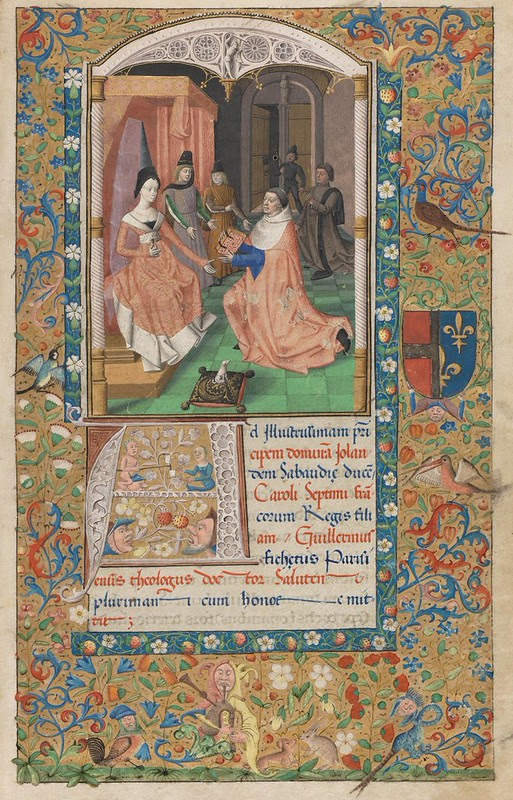 Ad Illustrissimam pri
cipem dominā Jolan
dem Sabaudie ducē
Caroli Septimi frā
corum Regis fili
am Guillermus
fichetus Parisi
ensis theologus doctor Salutem
plurimam cum honore mit
tit